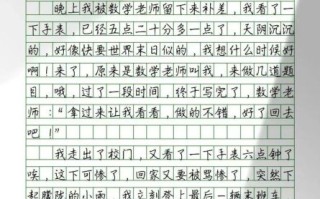 晚上我被数学老师留下来补差，我看了一
下手表，已经五点二十分多一点了，天阴沉沉
的，好像快要世界末日似的，我想什么时候好
啊！来了，原来是数学老师叫我，来做几道题
目，哦，过了一段时间，终于写完了，数学老
师：“拿过来让我看看，做的不错，好了回去
吧！”
我走出了校门，又看了一下手表六点钟了
唉，这下可惨了，回家又要被骂惨了，突然下
起朦胧的小雨，我立刻登上最后一辆末班车